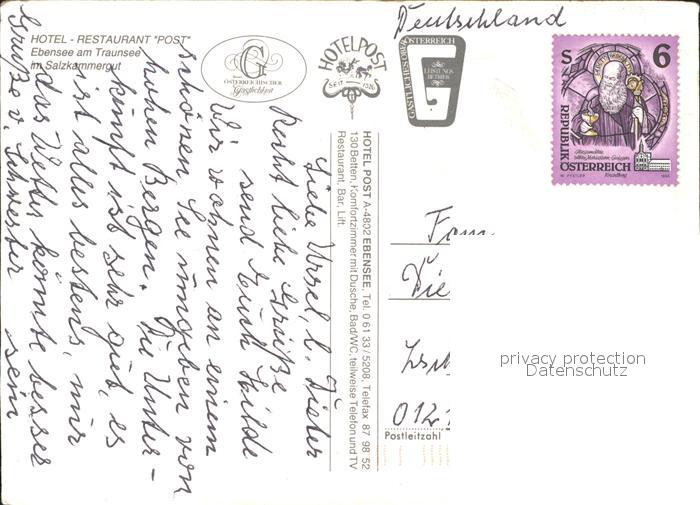 HOTEL - RESTAURANT "POST"
Ebensee am Traunsee
im Salzkammergut
G
ÖSTERREICHISCHER
Gastlichkeit
HOTELPOST
SEIT
GASTLICHES OBERÖSTERREICH
LEISTUNGS
BETRIEB
HOTEL POST A-4802 EBENSEE, Tel. 0 61 33 / 5208, Telefax 87 98 52
130 Betten, Komfortzimmer mit Dusche, Bad/WC, teilweise Telefon und TV
Restaurant, Bar, Lift.
Liebe Ursel, l. Dieter
Recht liebe Grüße
send Euch Hilde
Wir wohnen an einem
schönen See umgeben von
hohen Bergen. Die Unter-
kunft ist sehr gut, es
ist alles bestens, nur
das Wetter könnte besser
sein
Grüße v. Schwester
Deutschland
S 6
REPUBLIK
ÖSTERREICH
Fam
Die
012
Postleitzahl
privacy protection
Datenschutz